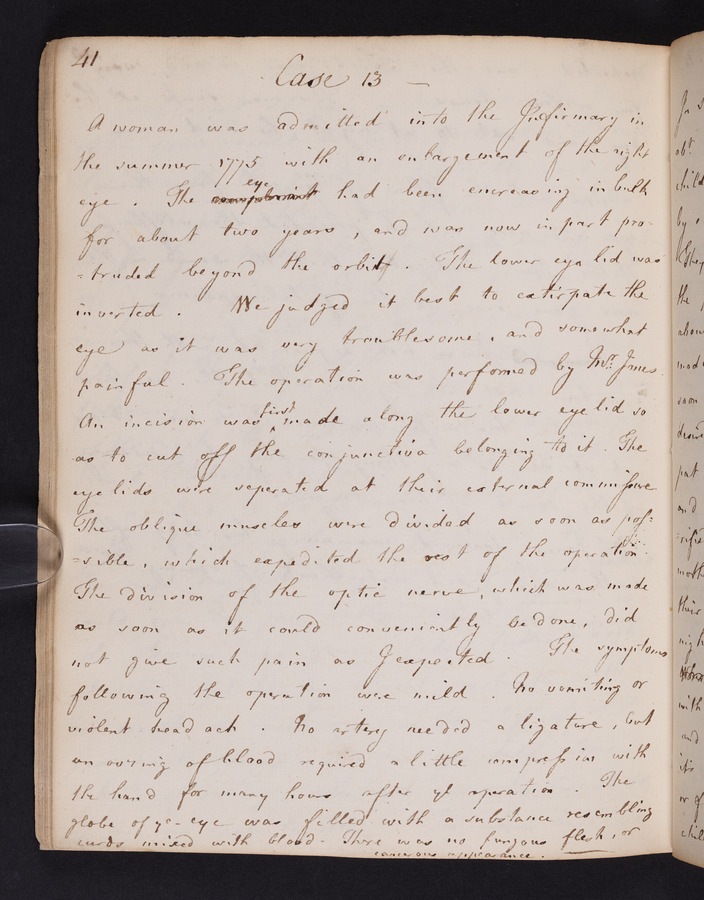 41
Case 13 —
A woman was admitted into the Infirmary in
the summer 1775 with an enlargement of the right
eye . The eye had been encreasing in bulk
for about two years , and was now in part pro-
-truded beyond the orbit . The lower eye lid was
inverted . We judged it best to extirpate the
eye as it was very troublesome , and somewhat
painful . The operation was performed by Mr.
An incision was first made along the lower eye lid so
as to cut off the conjunctiva belonging to it . The
eye lids were seperated at their external commissure
The oblique muscles were divided as soon as pos=
=sible , which expedited the rest of the operation .
The division of the optic nerve , which was made
as soon as it could conveniently be done , did
not give such pain as I expected . The symptoms
following the operation were mild . No vomiting or
violent head ach . No artery needed a ligature , but
an oozing of blood required a little compression with
the hand for many hours after ye operation . The
globe of ye eye was filled with a substance resembling
curds mixed with blood . There was no fungous flesh , or
cancerous appearance .